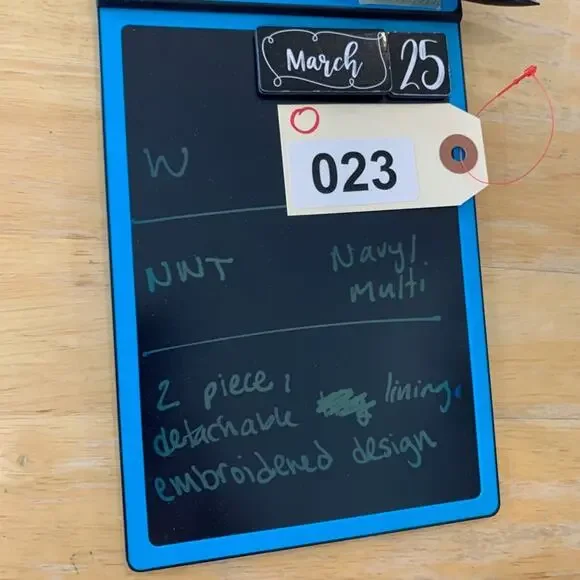 March 25
023
W
NWT Navy/
Multi
2 piece,
detachable lining,
embroidered design